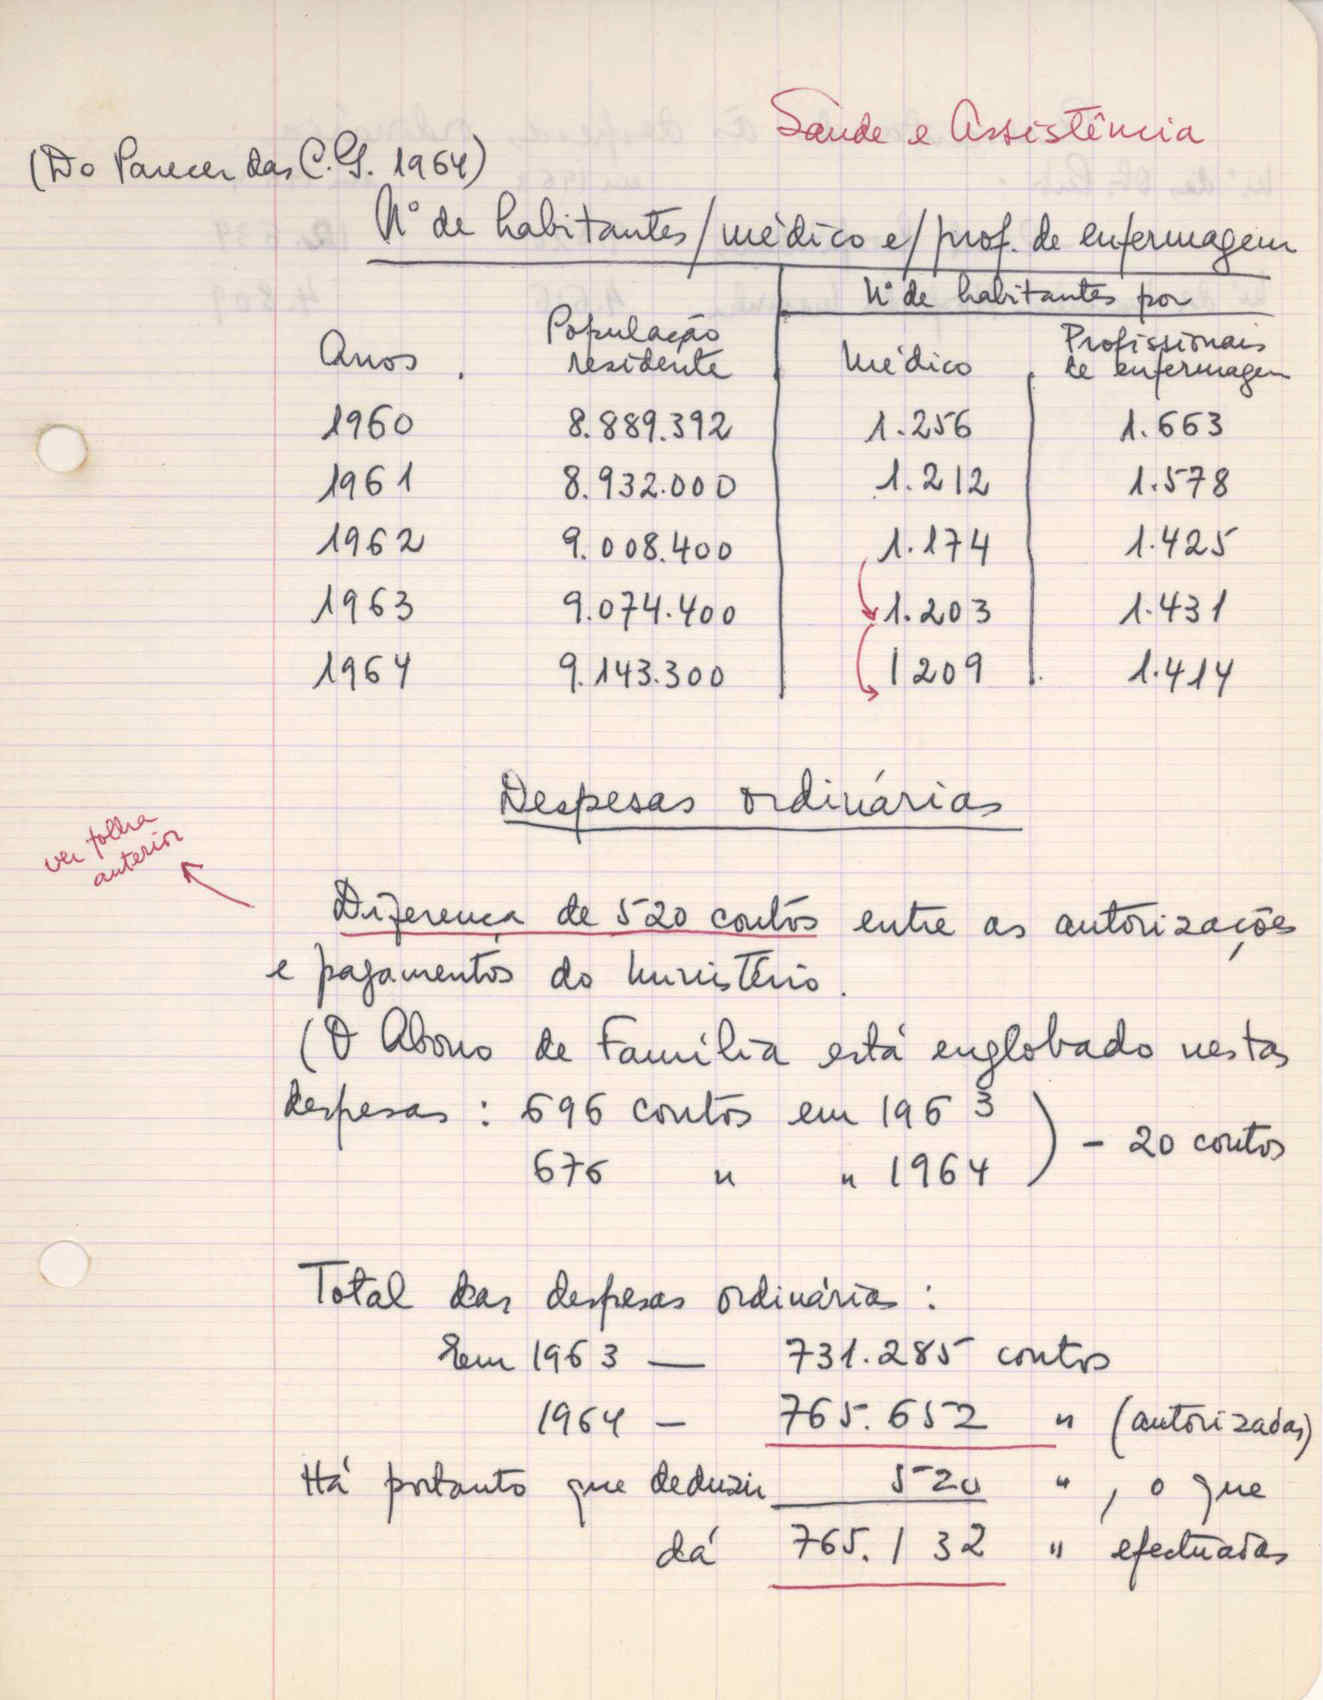 Saude e Assistência
(Do Parecer das C.G. 1964)
Nº de habitantes/médico e/prof. de enfermagem
Nº de habitantes por
Anos População residente Médico Profissionais de enfermagem
1960 8.889.392 1.256 1.663
1961 8.932.000 1.212 1.578
1962 9.008.400 1.174 1.425
1963 9.074.400 1.203 1.431
1964 9.143.300 1209 1.414
Despesas ordinárias
ver folha
anterior
Diferença de 520 contos entre as autorizações
e pagamentos do Ministério.
(O Abono de Família está englobado nestas
despesas: 696 contos em 1963
676 " " 1964) - 20 contos
Total das despesas ordinárias:
Em 1963 — 731.285 contos
1964 - 765.652 " (autorizadas)
Há portanto que deduzir 520 ", o que
dá 765.132 " efectuadas